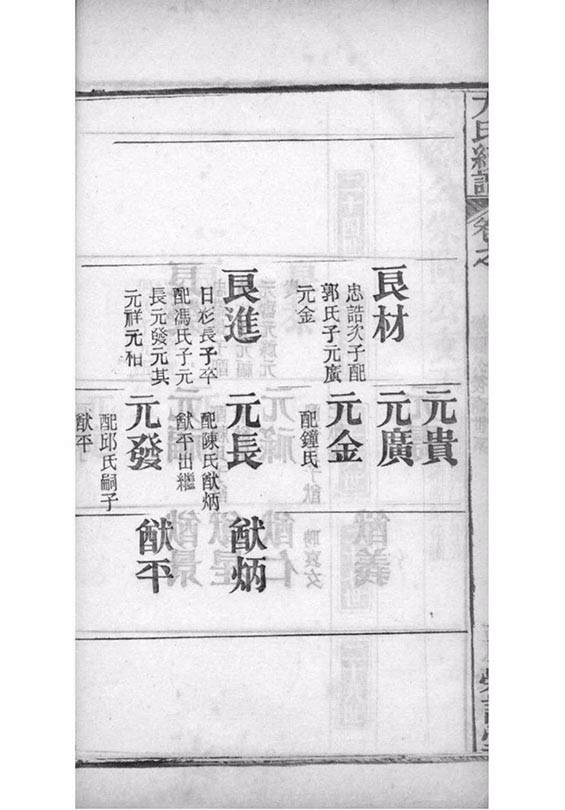 氏
卷之
良材
忠誥次子配
郭氏子元廣
元金
良進
日彩長子卒
配馮氏子元
長元發元其
元祥元和
元貴
元廣
元金
配鐘氏
元長
配陳氏猷炳
猷平出繼
元發
配邱氏嗣子
猷平
猷炳
猷平